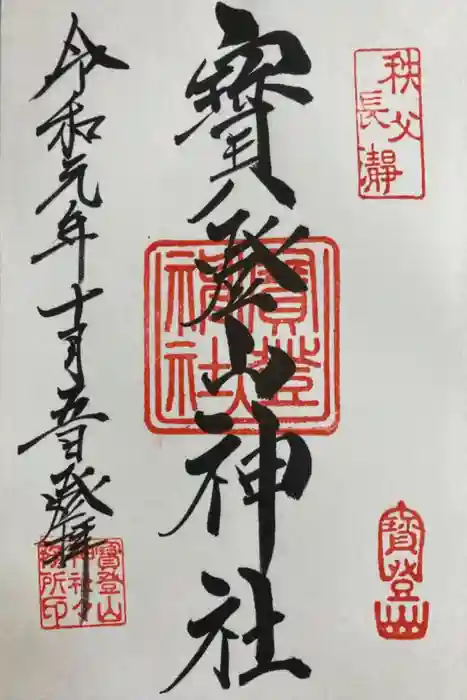 秩父
長瀞
寶登山神社
寶登
神社
寶登山
令和元年十月五日登拜
寶登山
神社々
務所印